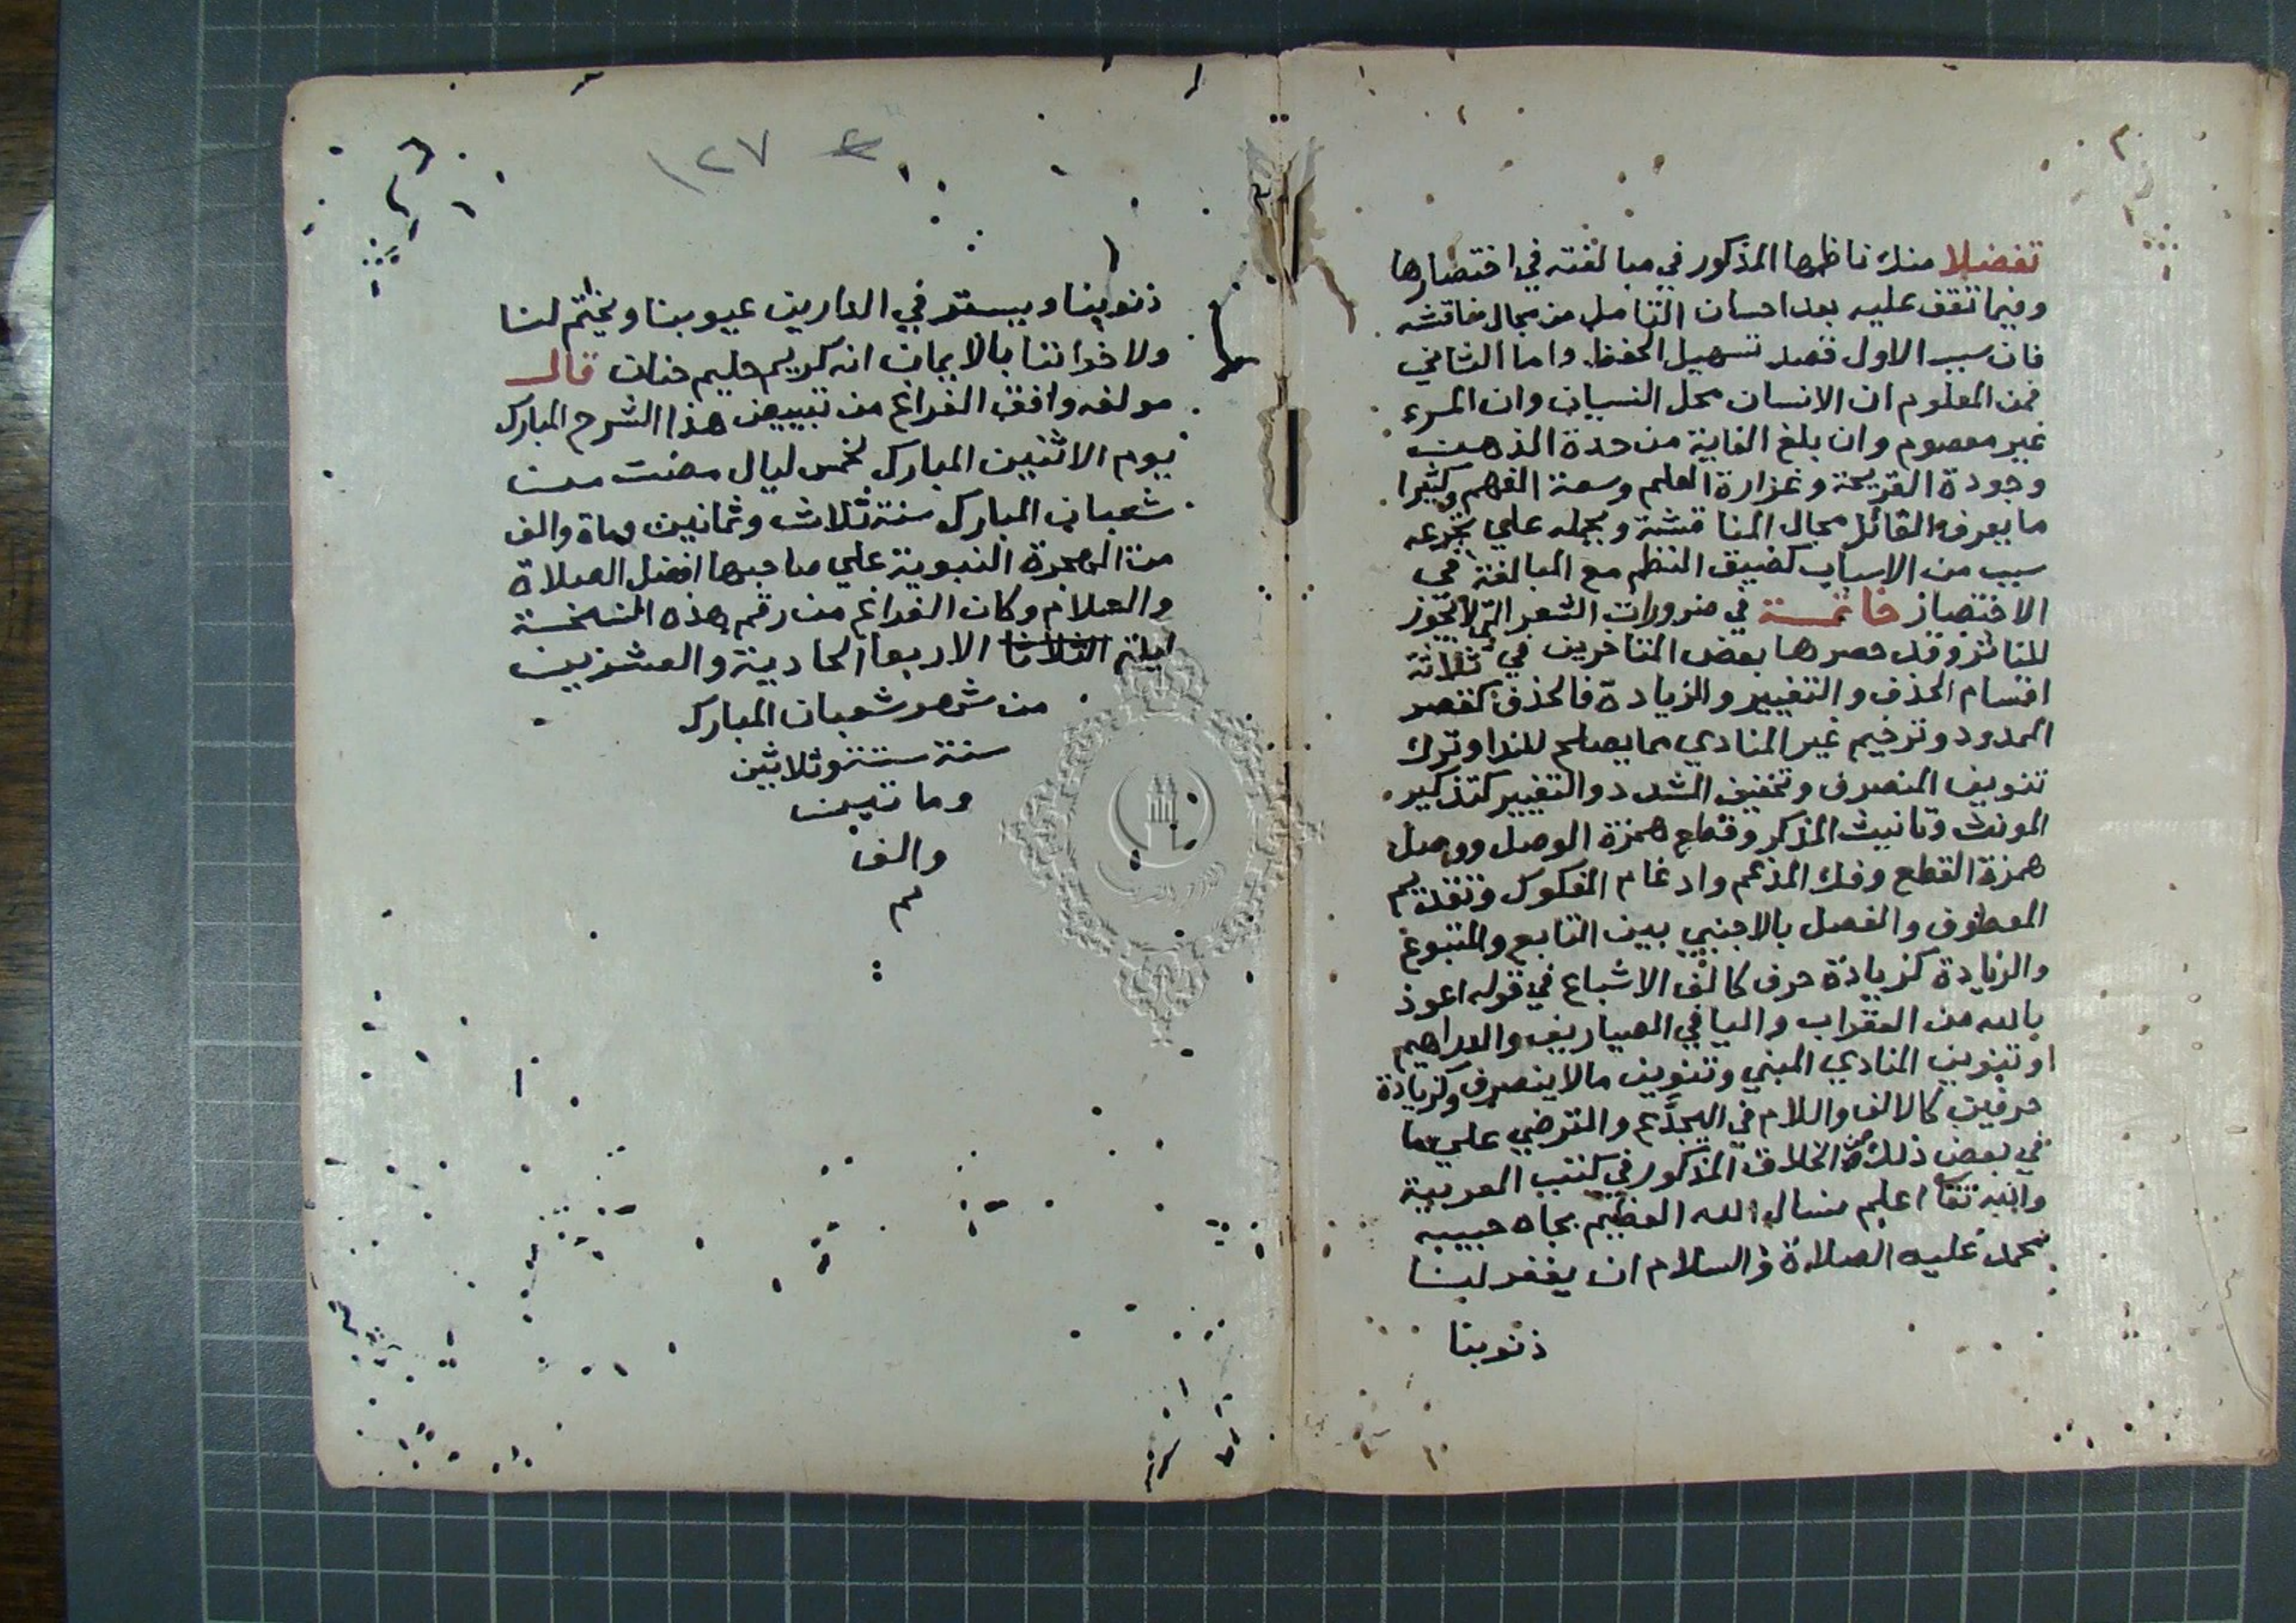 تفضلا منك ناظمها المذكور في مبالغته في اختصارها
وفيما تقف عليه بعد احسان التامل من مجال مناقشه
فان سبب الاول قصد تسهيل الحفظ واما الثاني
فمن المعلوم ان الانسان محل النسيان وان المرء
غير معصوم وان بلغ الغاية من حدة الذهن
وجودة القريحة وغزارة العلم وسعة الفهم وكثيرا
ما يعرف القائل مجال المناقشة ويحمله علي تجرعه
سبب من الاسباب كضيق النظم مع المبالغة في
الاختصار خاتمة في ضرورات الشعر التي لا تجوز
للناثر وقد حصرها بعض المتاخرين في ثلاثة
اقسام الحذف والتغيير والزيادة فالحذف كقصر
الممدود وترخيم غير المنادي مما يصلح للندا وترك
تنوين المنصرف وتخفيف المشدد والتغيير كتذكير
المونث وتانيث المذكر وقطع همزة الوصل ووصل
همزة القطع وفك المدغم وادغام المفكوك وتقديم
المعطوف والفصل بالاجنبي بين التابع والمتبوع
والزيادة كزيادة حرف كالف الاشباع في قوله اعوذ
بالله من العقراب واليا في الصياريف والدراهيم
او تنوين المنادي المبني وتنوين ما لا ينصرف وكزيادة
حرفين كالالف واللام في اليجدع والترضي علي ما
في بعض ذلك من الخلاف المذكور في كتب العربية
والله تعا اعلم نسال الله العظيم بجاه حبيبه
محمد عليه الصلاة والسلام ان يغفر لنا
ذنوبنا
١٢٧ ٤
ذنوبنا ويستر في الدارين عيوبنا ويختم لنا
ولاخواننا بالايمان انه كريم حليم حنان قال
مولفه وافق الفراغ من تبييض هذا الشرح المبارك
يوم الاثنين المبارك لخمس ليال مضت من
شعبان المبارك سنة ثلاث وثمانين وماة والف
من الهجرة النبوية علي صاحبها افضل الصلاة
والسلام وكان الفراغ من رقم هذه النسخة
ليلة الثلاثا الاربعا الحادية والعشرين
من شهر شعبان المبارك
سنة ستة وثلاثين
وماتيين
والف
م